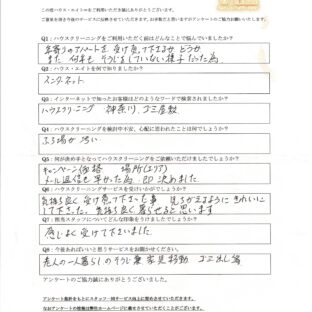 この度ハウス・エイトをご利用いただき誠にありがとうございます。
ご意見を頂き今後のサービスに反映させていただきます。お手数だと思いますがアンケートのご協力お願いいたします。
Q1：ハウスクリーニングをご利用いただく前はどんなことで悩んでいましたか？
年寄りのアパートを受け負って下さるかどうか
また何年もそうじをしていない様子だった為
Q2：ハウス・エイトを何で知りましたか？
インターネット
Q3：インターネットで知ったお客様はどのようなワードで検索されましたか？
ハウスクリーニング 神奈川 ゴミ屋敷
Q4：ハウスクリーニングを検討中不安、心配に思われたことは何でしょうか？
ふろ場が汚い
Q5：何が決め手となってハウスクリーニングをご依頼いただけましたでしょうか？
キャンペーン価格 場所(エリア)
メール返信も早かった為 即決めました
Q6：ハウスクリーニングサービスを受けいかがでしょうか？
気持ち良く受け負って下さった事 見ちがえるように きれいにして下さった。気持ち良く暮らせると思います
Q7：担当スタッフについてどんな印象をうけましたでしょうか？
感じよく受けて下さいました
Q8：今後あればいいと思うサービスをお聞かせください。
老人の一人暮らしのそうじ兼家具移動 ゴミ出し等
アンケートのご協力誠にありがとうございました。
アンケート集計をもとにスタッフ一同サービス向上に努めさせていただきます。
なおアンケートの情報は弊社ホームページに載せさせていただくことがございます。